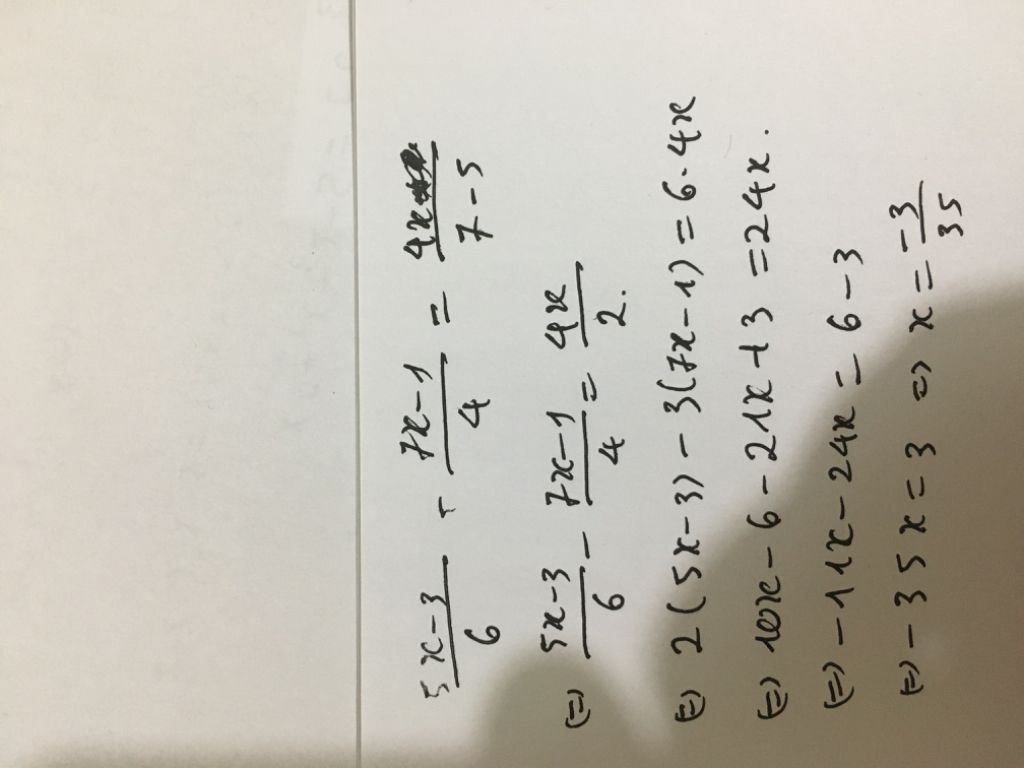 5x-3/6 - 7x-1/4 = 4x/7-5
(=) 5x-3/6 - 7x-1/4 = 4x/2.
(=) 2(5x-3) - 3(7x-1) = 6.4x
(=) 10x - 6 - 21x + 3 = 24x.
(=) -11x - 24x = 6 - 3
(=) -35x = 3 => x = -3/35